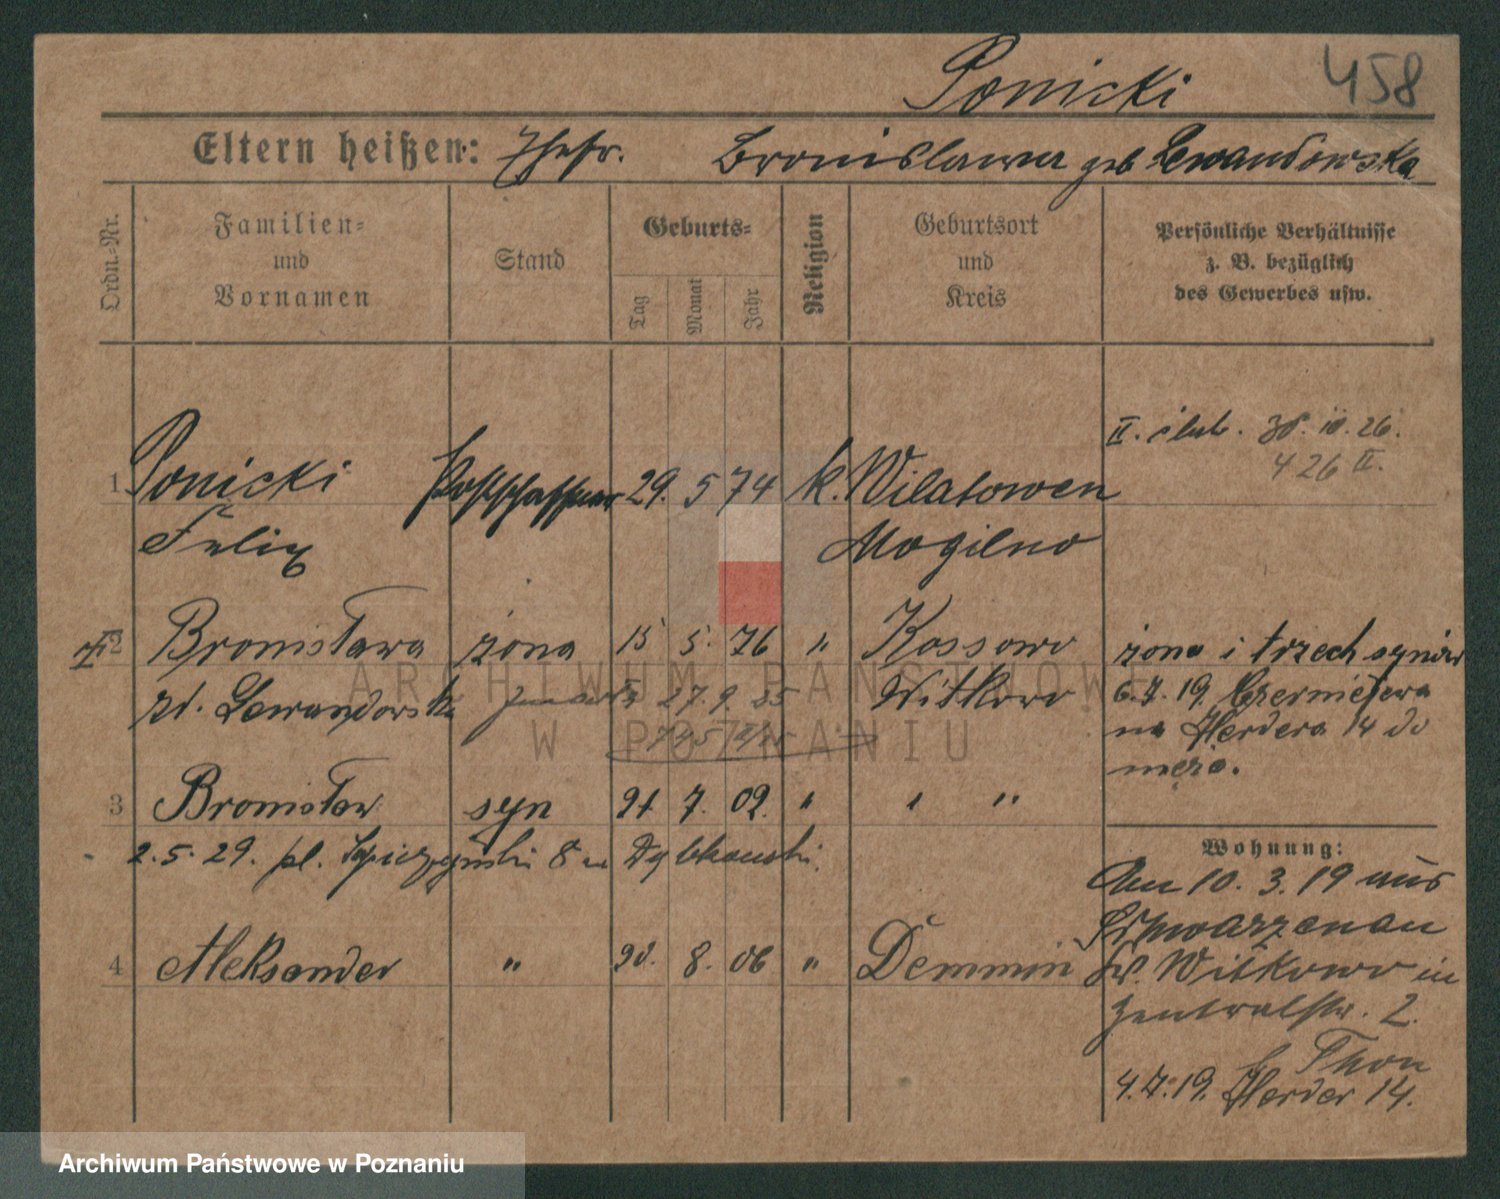 Ponicki 458
Eltern heißen: Ehefr. Bronislawa geb Lewandowska
Ordn.-Nr.
Familien-
und
Vornamen
Stand
Geburts-
Tag
Monat
Jahr
Religion
Geburtsort
und
Kreis
Persönliche Verhältnisse
z. B. bezüglich
des Gewerbes usw.
II. ślub. 30. 10. 26.
4 26 II.
1 Ponicki Postschaffner 29. 5 74 k. Wilatowen
Felix Mogilno
2 Bronisława żona 15 5. 76 " Kossowo
zd. Lewandowska 27. 9. 85 Witkowo
żona i trzech synów
6.7.19. Czerniejewa
na Herdera 14 do
męża.
3 Bronisław syn 21 7. 09. " " "
2.5.29. pl. 8
4 Aleksander " 20. 8. 06 " Demmin
Wohnung:
Am 10. 3. 19 aus
Schwarzenau
Kr. Witkowo in
Zentralstr. 2.
b Thon
4.7.19. Herder 14.
ARCHIWUM PAŃSTWOWE
W POZNANIU
Archiwum Państwowe w Poznaniu